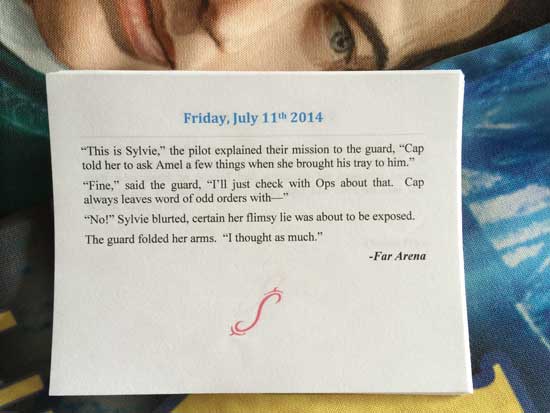 Friday, July 11th 2014
“This is Sylvie,” the pilot explained their mission to the guard, “Cap
told her to ask Amel a few things when she brought his tray to him.”
“Fine,” said the guard, “I’ll just check with Ops about that.  Cap
always leaves word of odd orders with—”
“No!” Sylvie blurted, certain her flimsy lie was about to be exposed.
The guard folded her arms.  “I thought as much.”
-Far Arena